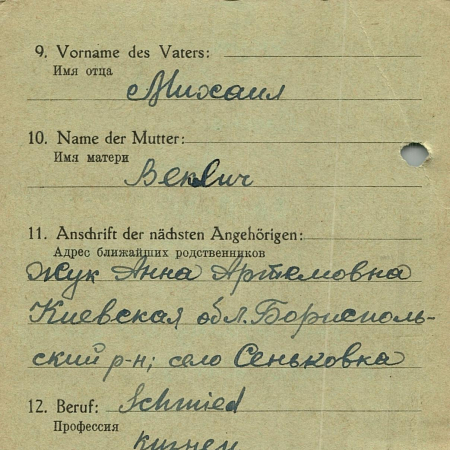 9. Vorname des Vaters:
Имя отца
Михаил
10. Name der Mutter:
Имя матери
Векlич
11. Anschrift der nächsten Angehörigen:
Адрес ближайших родственников
Жук Анна Артемовна
Киевская обл. Борисполь-
ский р-н; село Сеньковка
12. Beruf: Schmied
Профессия